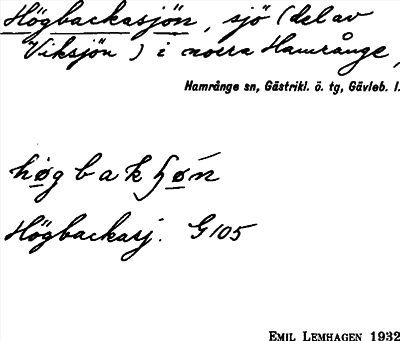 Högbackasjön, sjö (del av
Viksjön) i norra Hamrånge,
Hamrånge sn, Gästrikl. ö. tg, Gävleb. l.
høgbakʃøń
Högbackasj. G 105
EMIL LEMHAGEN 1932